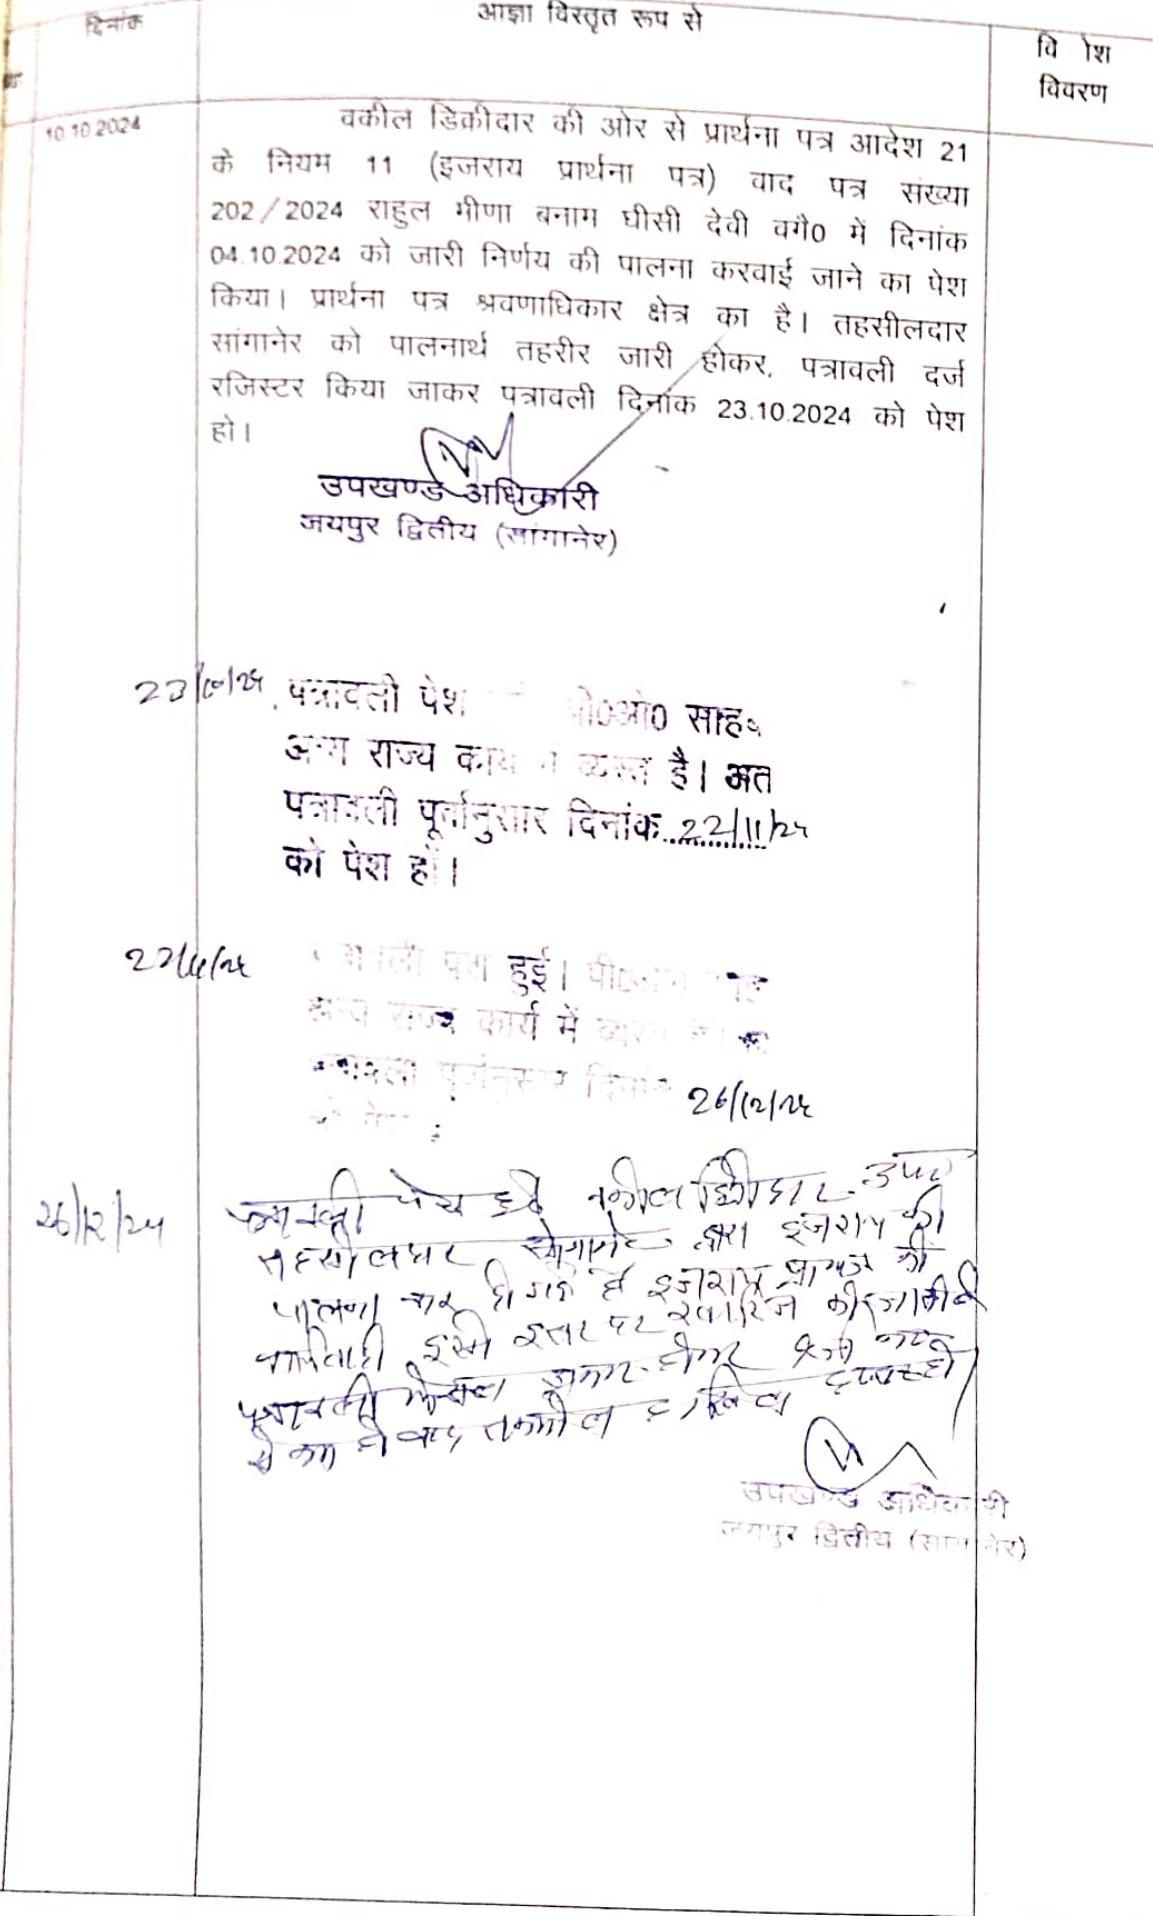 दिनांक
आज्ञा विस्तृत रूप से
वि ोश
विवरण
10.10.2024
वकील डिक्रीदार की ओर से प्रार्थना पत्र आदेश 21
के नियम 11 (इजराय प्रार्थना पत्र) वाद पत्र संख्या
202/2024 राहुल मीणा बनाम घीसी देवी वगै0 में दिनांक
04.10.2024 को जारी निर्णय की पालना करवाई जाने का पेश
किया। प्रार्थना पत्र श्रवणाधिकार क्षेत्र का है। तहसीलदार
सांगानेर को पालनार्थ तहरीर जारी होकर, पत्रावली दर्ज
रजिस्टर किया जाकर पत्रावली दिनांक 23.10.2024 को पेश
हो।
उपखण्ड अधिकारी
जयपुर द्वितीय (सांगानेर)
23/10/24 पत्रावली पेश पी0ओ0 साहब
अन्य राज्य कार्य में व्यस्त है। अत
पत्रावली पूर्वानुसार दिनांक 22/11/24
को पेश हो।
22/11/24 पेश हुई।
अन्य राज्य कार्य में व्यस्त
पत्रावली पूर्वानुसार दिनांक 26/12/24
26/12/24 पत्रावली पेश हुई वकील डिक्रीदार उप0
तहसीलदार सांगानेर द्वारा इजराय की
पालना कर दी गई है इजराय प्रा0पत्र की
कार्यवाही इसी स्तर पर खारिज की जाती है
पत्रावली फैसल शुमार होकर
बाद तकमील दाखिल दफ्तर हो
उपखण्ड अधिकारी
जयपुर द्वितीय (सांगानेर)